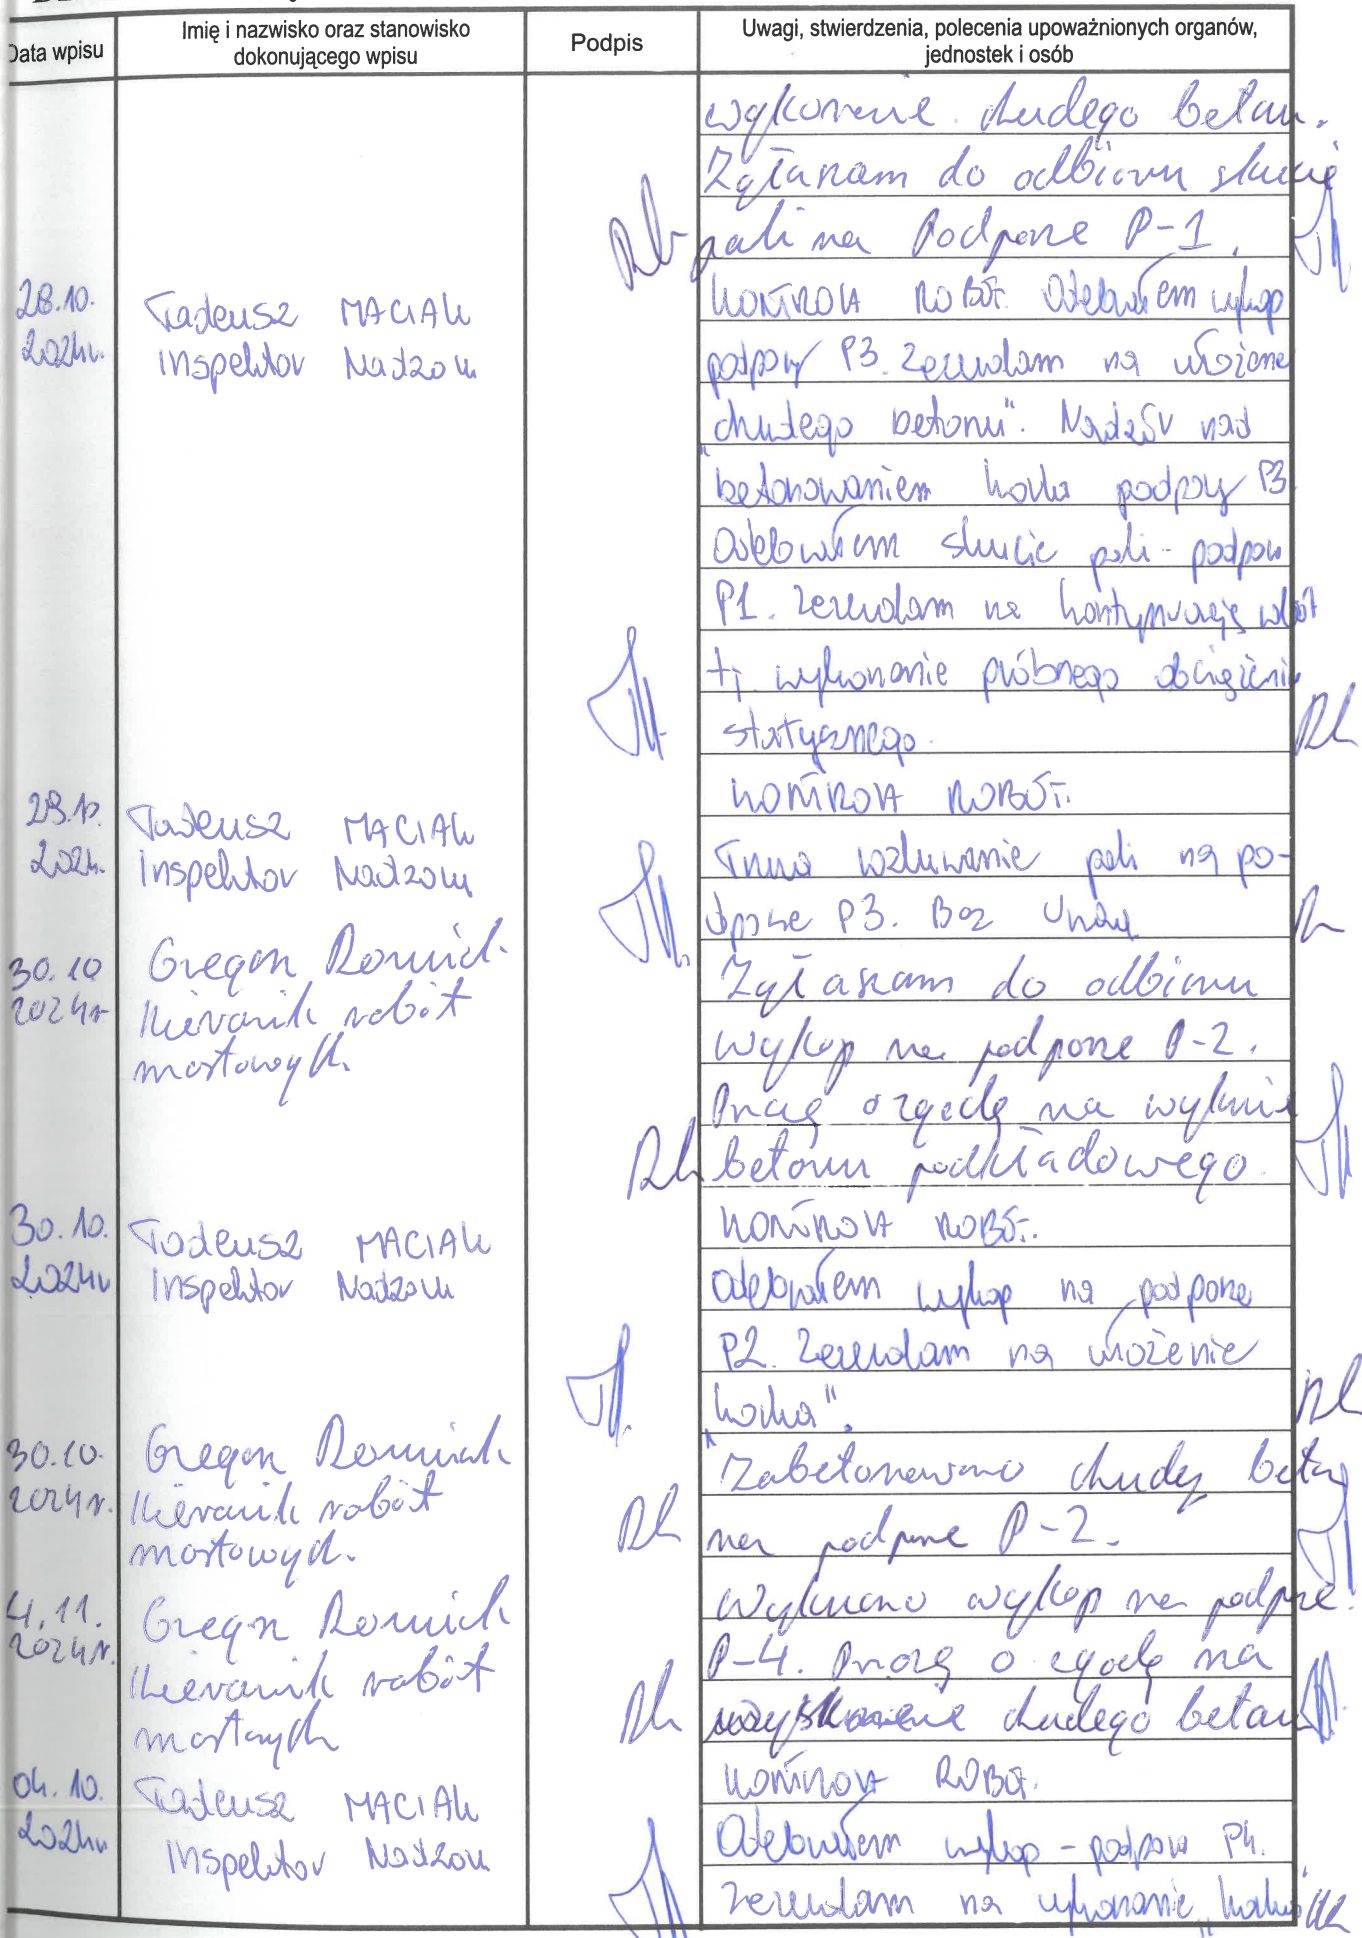 Data wpisu
Imię i nazwisko oraz stanowisko
dokonującego wpisu
Podpis
Uwagi, stwierdzenia, polecenia upoważnionych organów,
jednostek i osób
wykonanie chudego betonu.
Zgłaszam do odbioru skucie
pali na Podporze P-1.
28.10.
2024r.
Tadeusz MACIAK
Inspektor Nadzoru
KONTROLA ROBÓT. Odebrałem wykop
podpory P3. Zezwalam na ułożenie
„chudego betonu". Nadzór nad
betonowaniem korka podpory P3.
Odebrałem skucie pali - podpora
P1. Zezwalam na kontynuację robót
tj. wykonanie próbnego obciążenia
statycznego.
29.10.
2024r.
Tadeusz MACIAK
Inspektor Nadzoru
KONTROLA ROBÓT.
Trwa rozkuwanie pali na po-
dporze P3. Bez uwag
30.10
2024r
Kierownik robót
mostowych.
Zgłaszam do odbioru
wykop na podporze P-2.
Proszę o zgodę na wykonanie
betonu podkładowego.
30.10.
2024r
Tadeusz MACIAK
Inspektor Nadzoru
KONTROLA ROBÓT.
Odebrałem wykop na podporze
P2. Zezwalam na ułożenie
„korka".
30.10.
2024r.
Kierownik robót
mostowych.
Zabetonowano chudy beton
na podporze P-2.
4.11.
2024r.
Kierownik robót
mostowych
Wykonano wykop na podporze
P-4. Proszę o zgodę na
wykonanie chudego betonu
04.10.
2024r
Tadeusz MACIAK
Inspektor Nadzoru
KONTROLA ROBÓT.
Odebrałem wykop - podpora P4.
Zezwalam na wykonanie „korka"